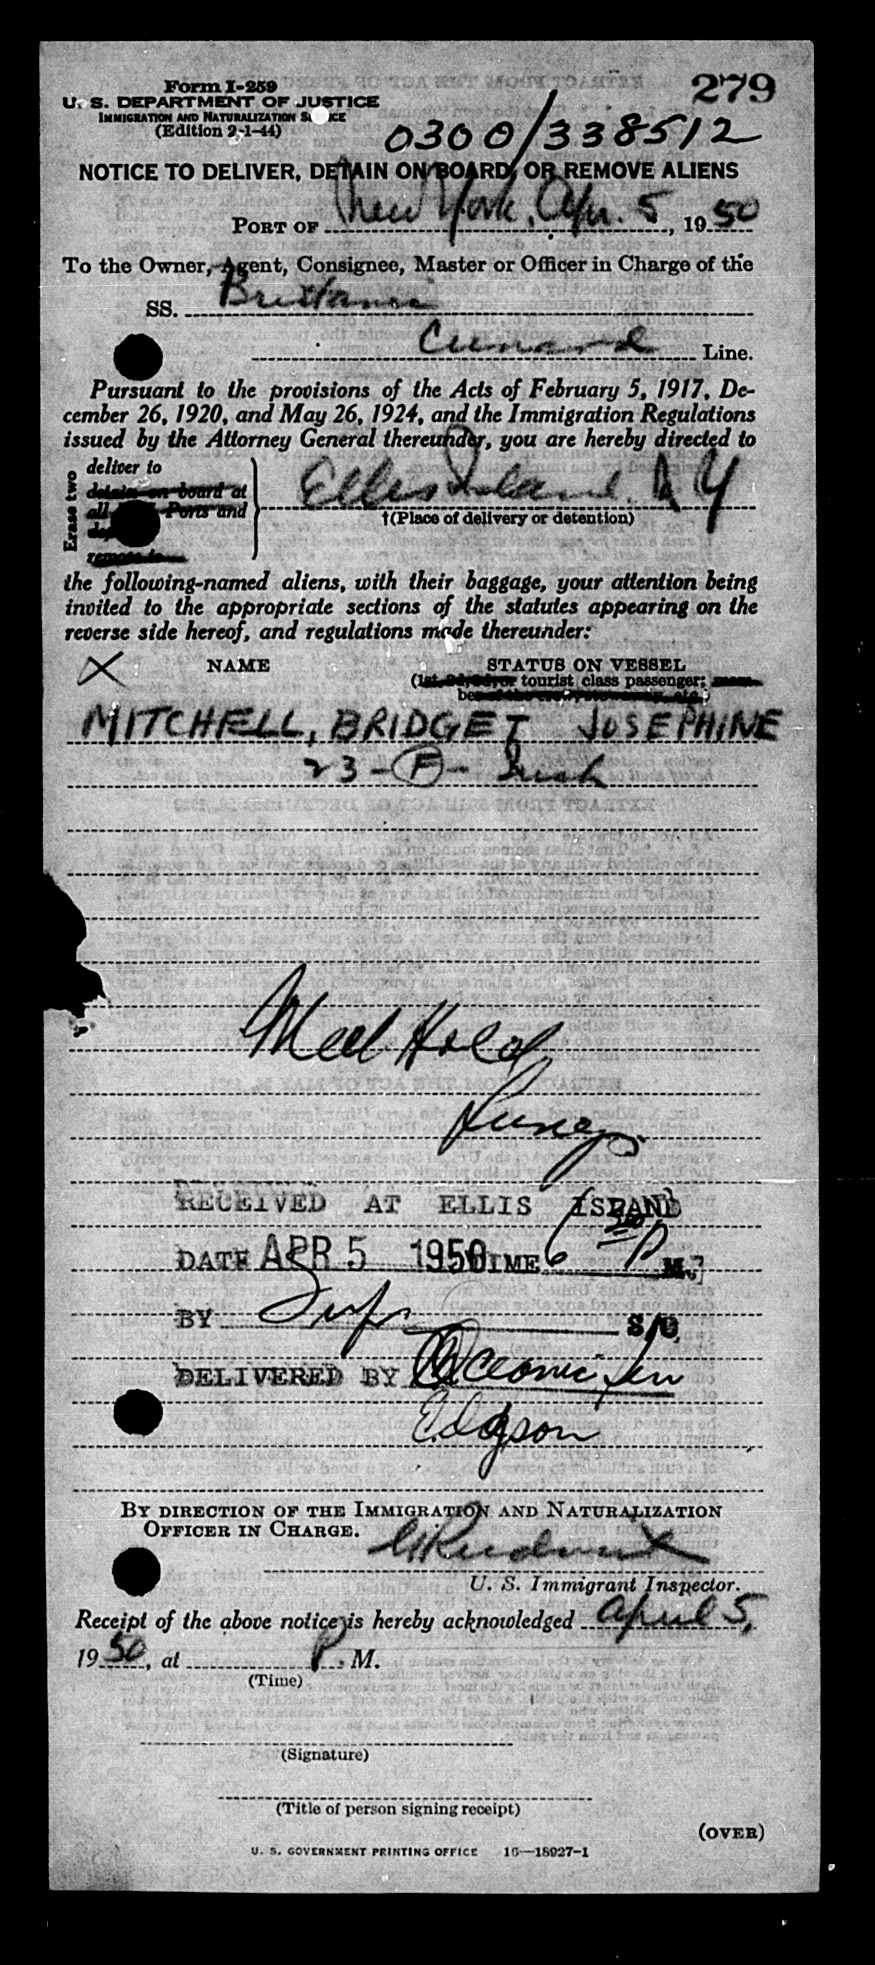 279
Form I-259
U. S. DEPARTMENT OF JUSTICE
IMMIGRATION AND NATURALIZATION S ICE
(Edition 2-1-44)
0300/338512
NOTICE TO DELIVER, DETAIN ON BOARD, OR REMOVE ALIENS
PORT OF New York, Apr. 5, 1950
To the Owner, Agent, Consignee, Master or Officer in Charge of the
SS. Brittanic
Cunard Line.
Pursuant to the provisions of the Acts of February 5, 1917, De-
cember 26, 1920, and May 26, 1924, and the Immigration Regulations
issued by the Attorney General thereunder, you are hereby directed to
Erase two
deliver to
detain on board at
all Ports and
remove to
Ellis Island. N Y
†(Place of delivery or detention)
the following-named aliens, with their baggage, your attention being
invited to the appropriate sections of the statutes appearing on the
reverse side hereof, and regulations made thereunder:
X NAME STATUS ON VESSEL
(1st, 2d, 3d, or tourist class passenger; mem-
ber of the crew, stowaway, etc.)
MITCHELL, BRIDGET JOSEPHINE
23 - F - Irish
Med Hold
RECEIVED AT ELLIS ISLAND
DATE APR 5 1950 TIME 6 P M.
BY S/O
DELIVERED BY Oceanic
Edgson
BY DIRECTION OF THE IMMIGRATION AND NATURALIZATION
OFFICER IN CHARGE.
U. S. Immigrant Inspector.
Receipt of the above notice is hereby acknowledged April 5,
1950, at P. M.
(Time)
(Signature)
(Title of person signing receipt)
(OVER)
U. S. GOVERNMENT PRINTING OFFICE 16—18927-1